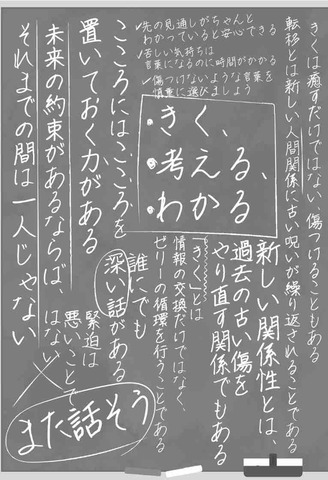 きくは癒すだけではない、傷つけることもある
転移とは新しい人間関係に古い呪いが繰り返されることである
✓先の見通しがちゃんと
わかっていると安心できる
✓苦しい気持ちは
言葉になるのに時間がかかる
✓傷つけないような言葉を
慎重に選びましょう
・きく、
・考える、
・わかる
新しい関係性とは、
過去の古い傷を
やり直す関係でもある
「きく」とは
情報の交換だけではなく、
ゼリーの循環を行うことである
誰にでも
深い話がある
こころにはこころを
置いておく力がある
未来の約束があるならば、
それまでの間は一人じゃない
緊迫は
悪いことで
はない
また話そう